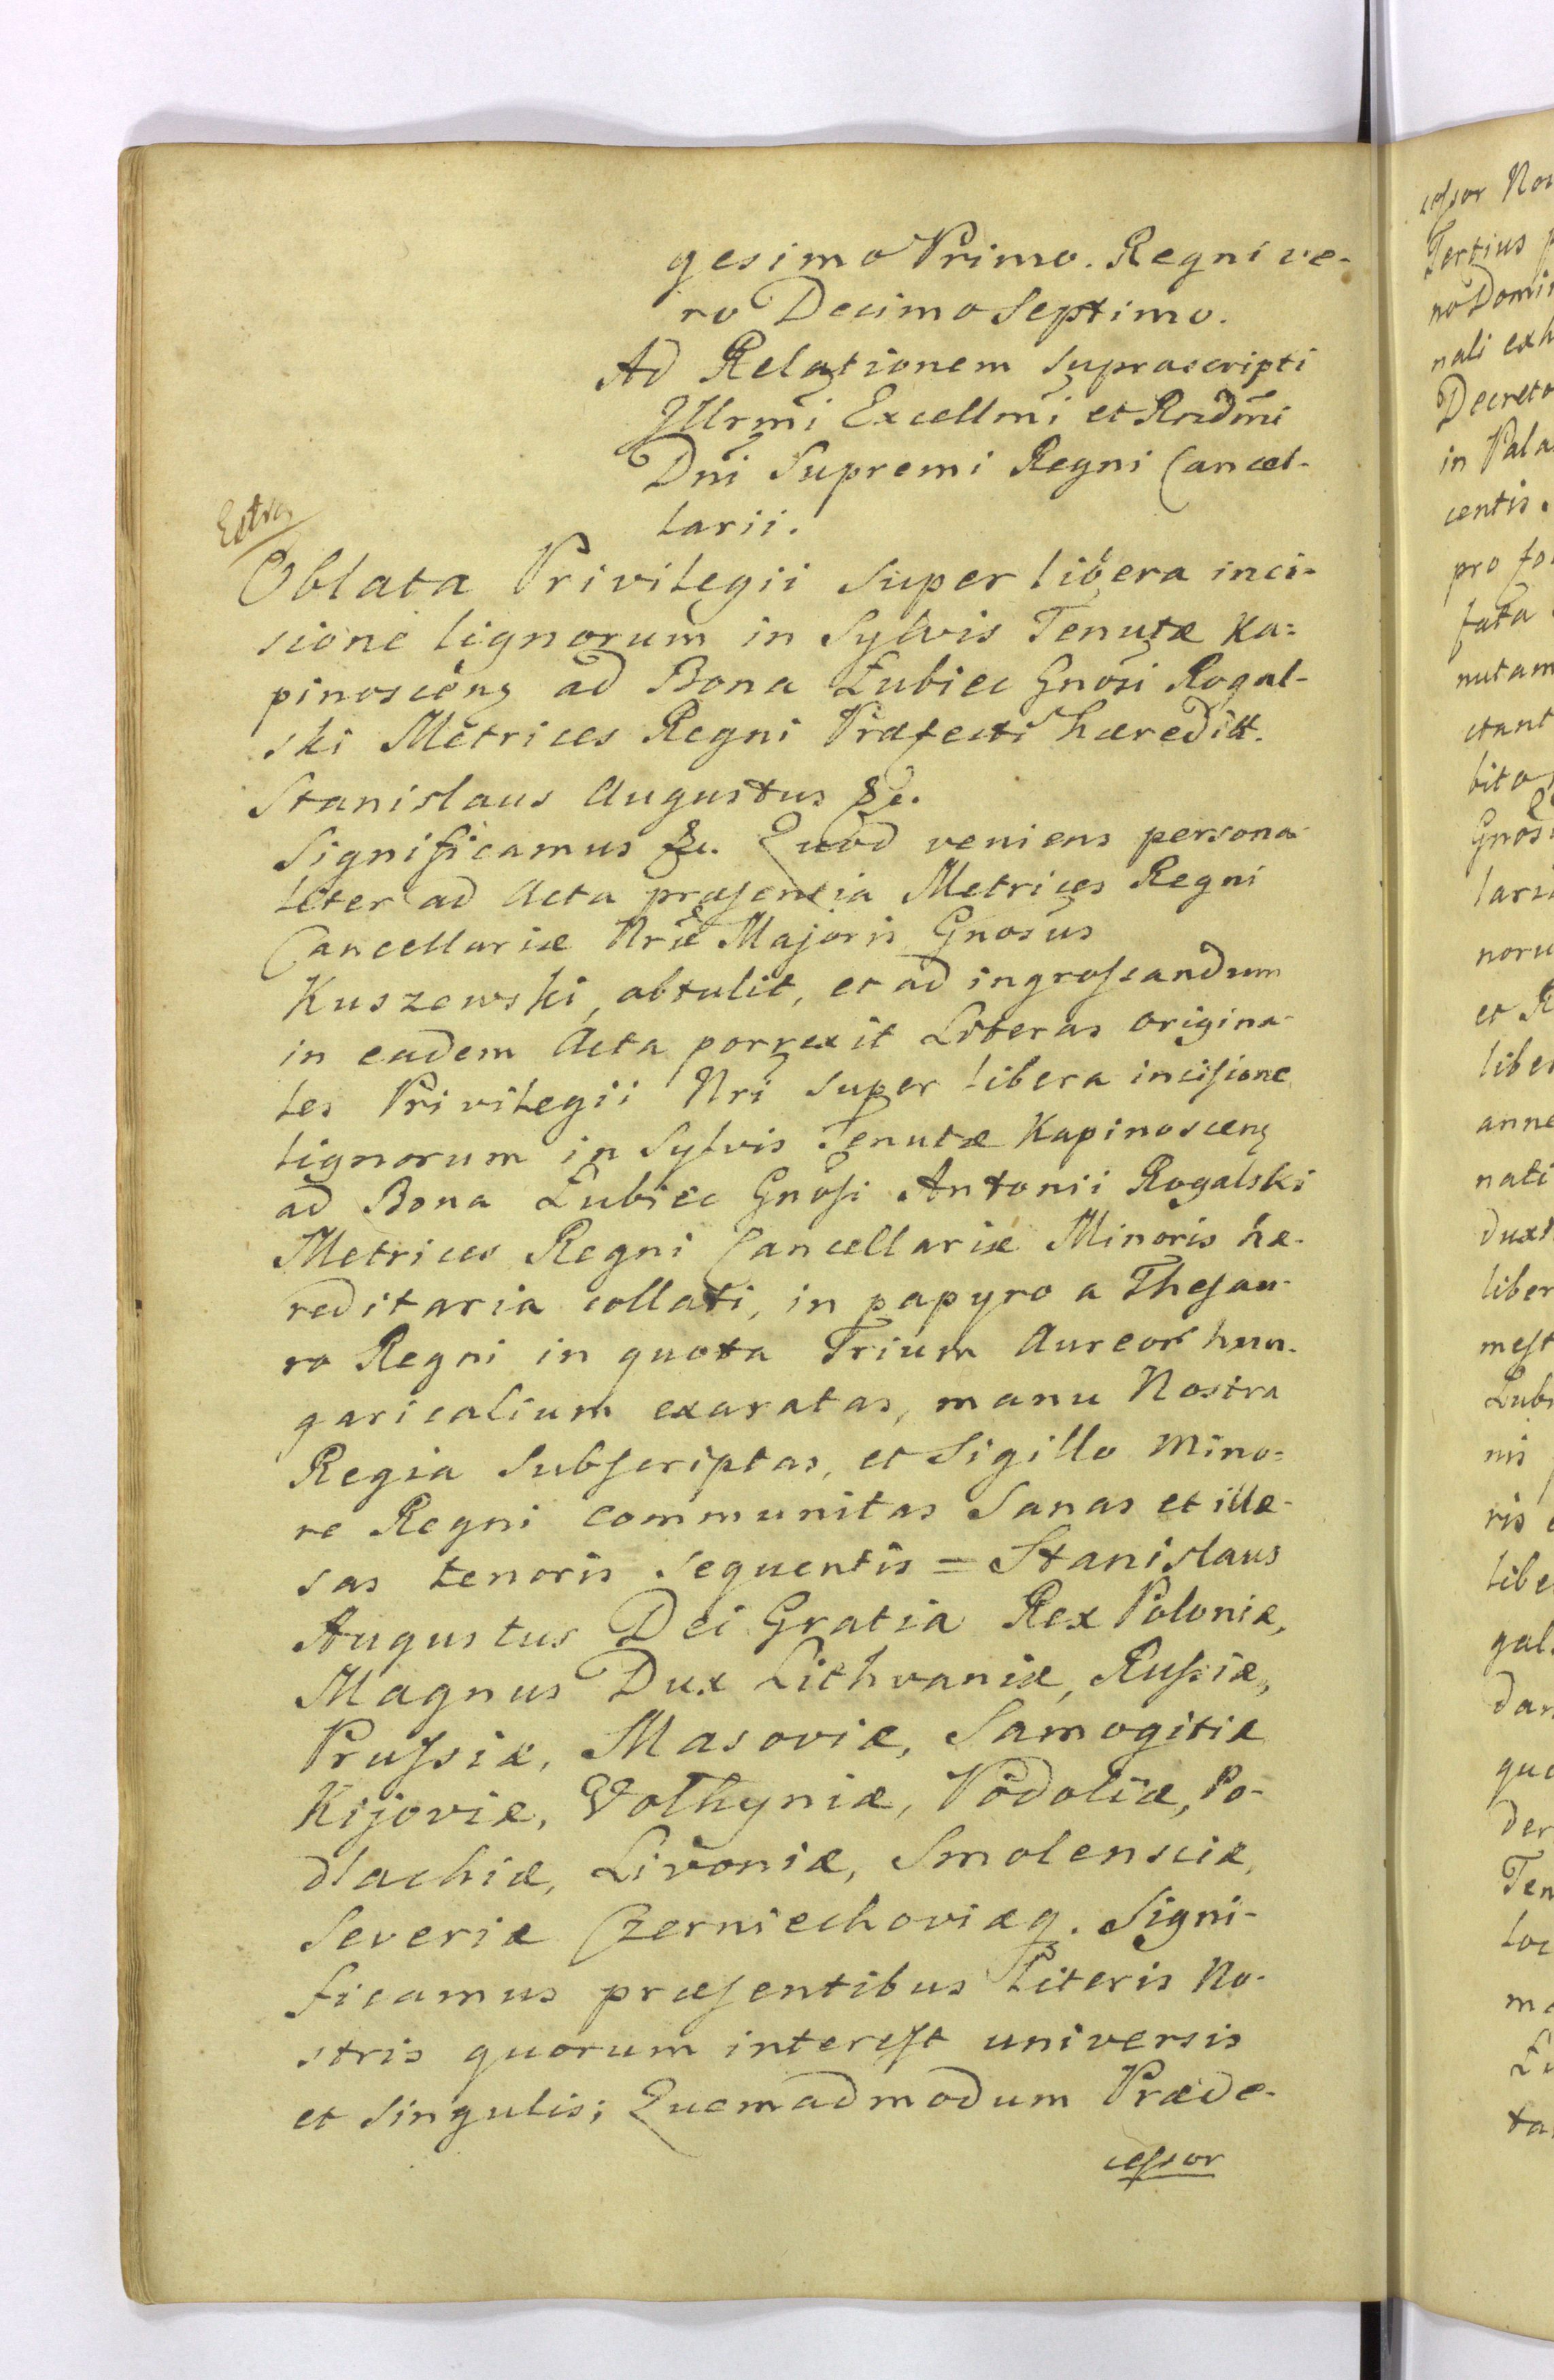 gesimo Primo. Regni ve-
ro Decimo Septimo.
Ad Relationem suprascripti
Illrmi Excellmi et Rndmi
Dni Supremi Regni Cancel-
larii.
Extra
Oblata Privilegii super libera inci-
sione lignorum in Sylvis Tenutæ Ka=
pinosceng ad Bona Łubiec Gnosi Rogal-
ski Metrices Regni Præfecti hæreditt.
Stanislaus Augustus &c.
Significamus &c. Quod veniens persona
liter ad Acta præsentia Metrices Regni
Cancellariæ Nræ Majoris Gnosus
Kuszewski, obtulit, et ad ingrossandum
in eadem Acta porrexit Literas origina-
les Privilegii Nri super libera incisione
lignorum in Sylvis Tenutæ Kapinosceng
ad Bona Łubiec Gnosi Antonii Rogalski
Metrices Regni Cancellariæ Minoris hæ-
reditaria collati, in papyro a Thesau-
ro Regni in quota Trium Aureor hun-
garicalium exaratas, manu Nostra
Regia Subscriptas, et Sigillo Mino=
re Regni communitas Sanas et illæ-
sas tenoris sequentis = Stanislaus
Augustus Dei Gratia Rex Poloniæ,
Magnus Dux Lithvaniæ, Russiæ,
Prussiæ, Masoviæ, Samogitiæ
Kijoviæ, Volhyniæ, Podoliæ, Po-
dlachiæ, Livoniæ, Smolensciæ,
Severiæ Czerniechoviæq. Signi-
ficamus præsentibus Literis No-
stris quorum interest universis
et singulis; Quemadmodum Præde-
cessor
cessor
Tertius
no Domi
nali exh
Decreto
in Pala
centis.
pro fo
fata
nutam
ctant
bito
Gnosi
lari
noru
et R
liber
anne
nati
duxi
liber
mest
Łubi
nis
ris
libe
gal
dan
quo
der
Ten
loc
ma
Łu
ta